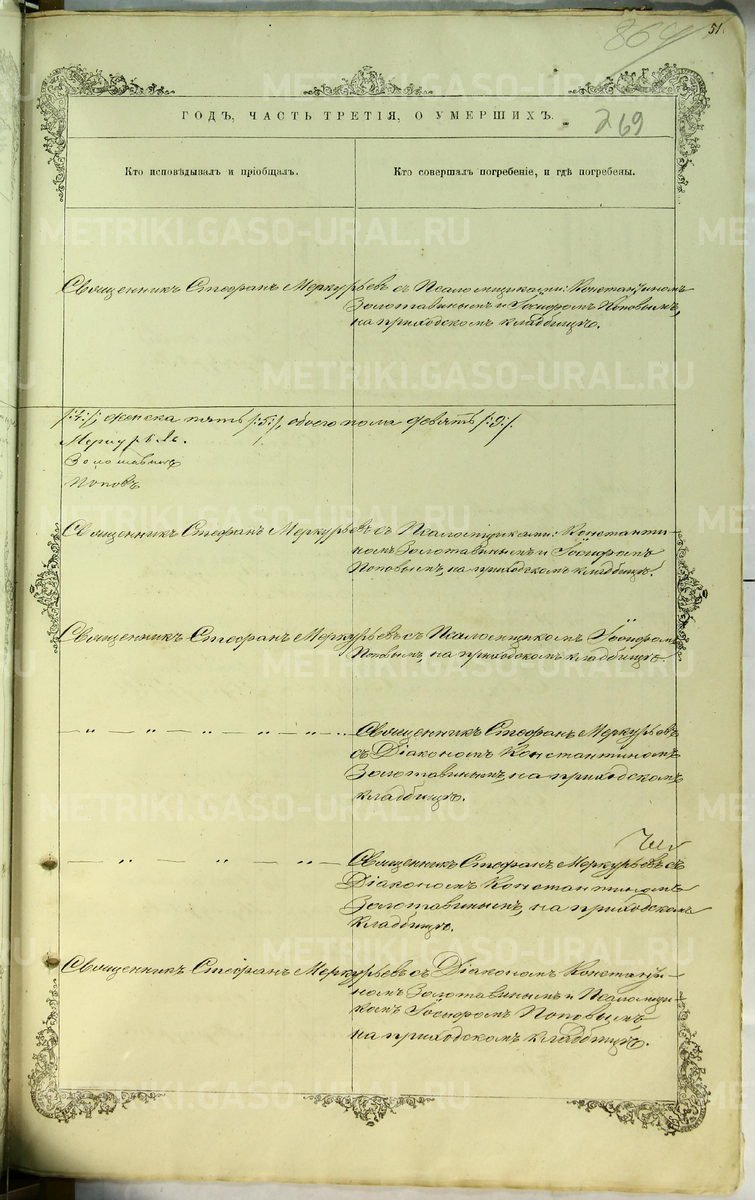 51.
869
ГОДЪ, ЧАСТЬ ТРЕТІЯ, О УМЕРШИХЪ.
269
Кто исповѣдывалъ и пріобщалъ.
Кто совершалъ погребеніе, и гдѣ погребены.
Священникъ Стефанъ Меркурьевъ съ Псаломщиками: Константиномъ
Золотавинымъ и Іосифомъ Поповымъ,
на приходскомъ кладбищѣ.
/:4:/, женска пять /:5:/, обоего пола девять /:9:/.
Меркурьевъ.
Золотавинъ
Поповъ
Священникъ Стефанъ Меркурьевъ съ Псаломщиками: Константи-
номъ Золотавинымъ и Іосифомъ
Поповымъ, на приходскомъ кладбищѣ.
Священникъ Стефанъ Меркурьевъ съ Псаломщикомъ Іосифомъ
Поповымъ, на приходскомъ кладбищѣ.
— „ — „ — „ — „ — „ — Священникъ Стефанъ Меркурьевъ
съ Діакономъ Константиномъ
Золотавинымъ, на приходскомъ
кладбищѣ.
— „ — „ — „ — Священникъ Стефанъ Меркурьевъ съ
Діакономъ Константиномъ
Золотавинымъ, на приходскомъ
кладбищѣ.
Священникъ Стефанъ Меркурьевъ съ Діакономъ Констати-
номъ Золотавинымъ и Псаломщи-
комъ Іосифомъ Поповымъ
на приходскомъ кладбищѣ.
METRIKI.GASO-URAL.RU